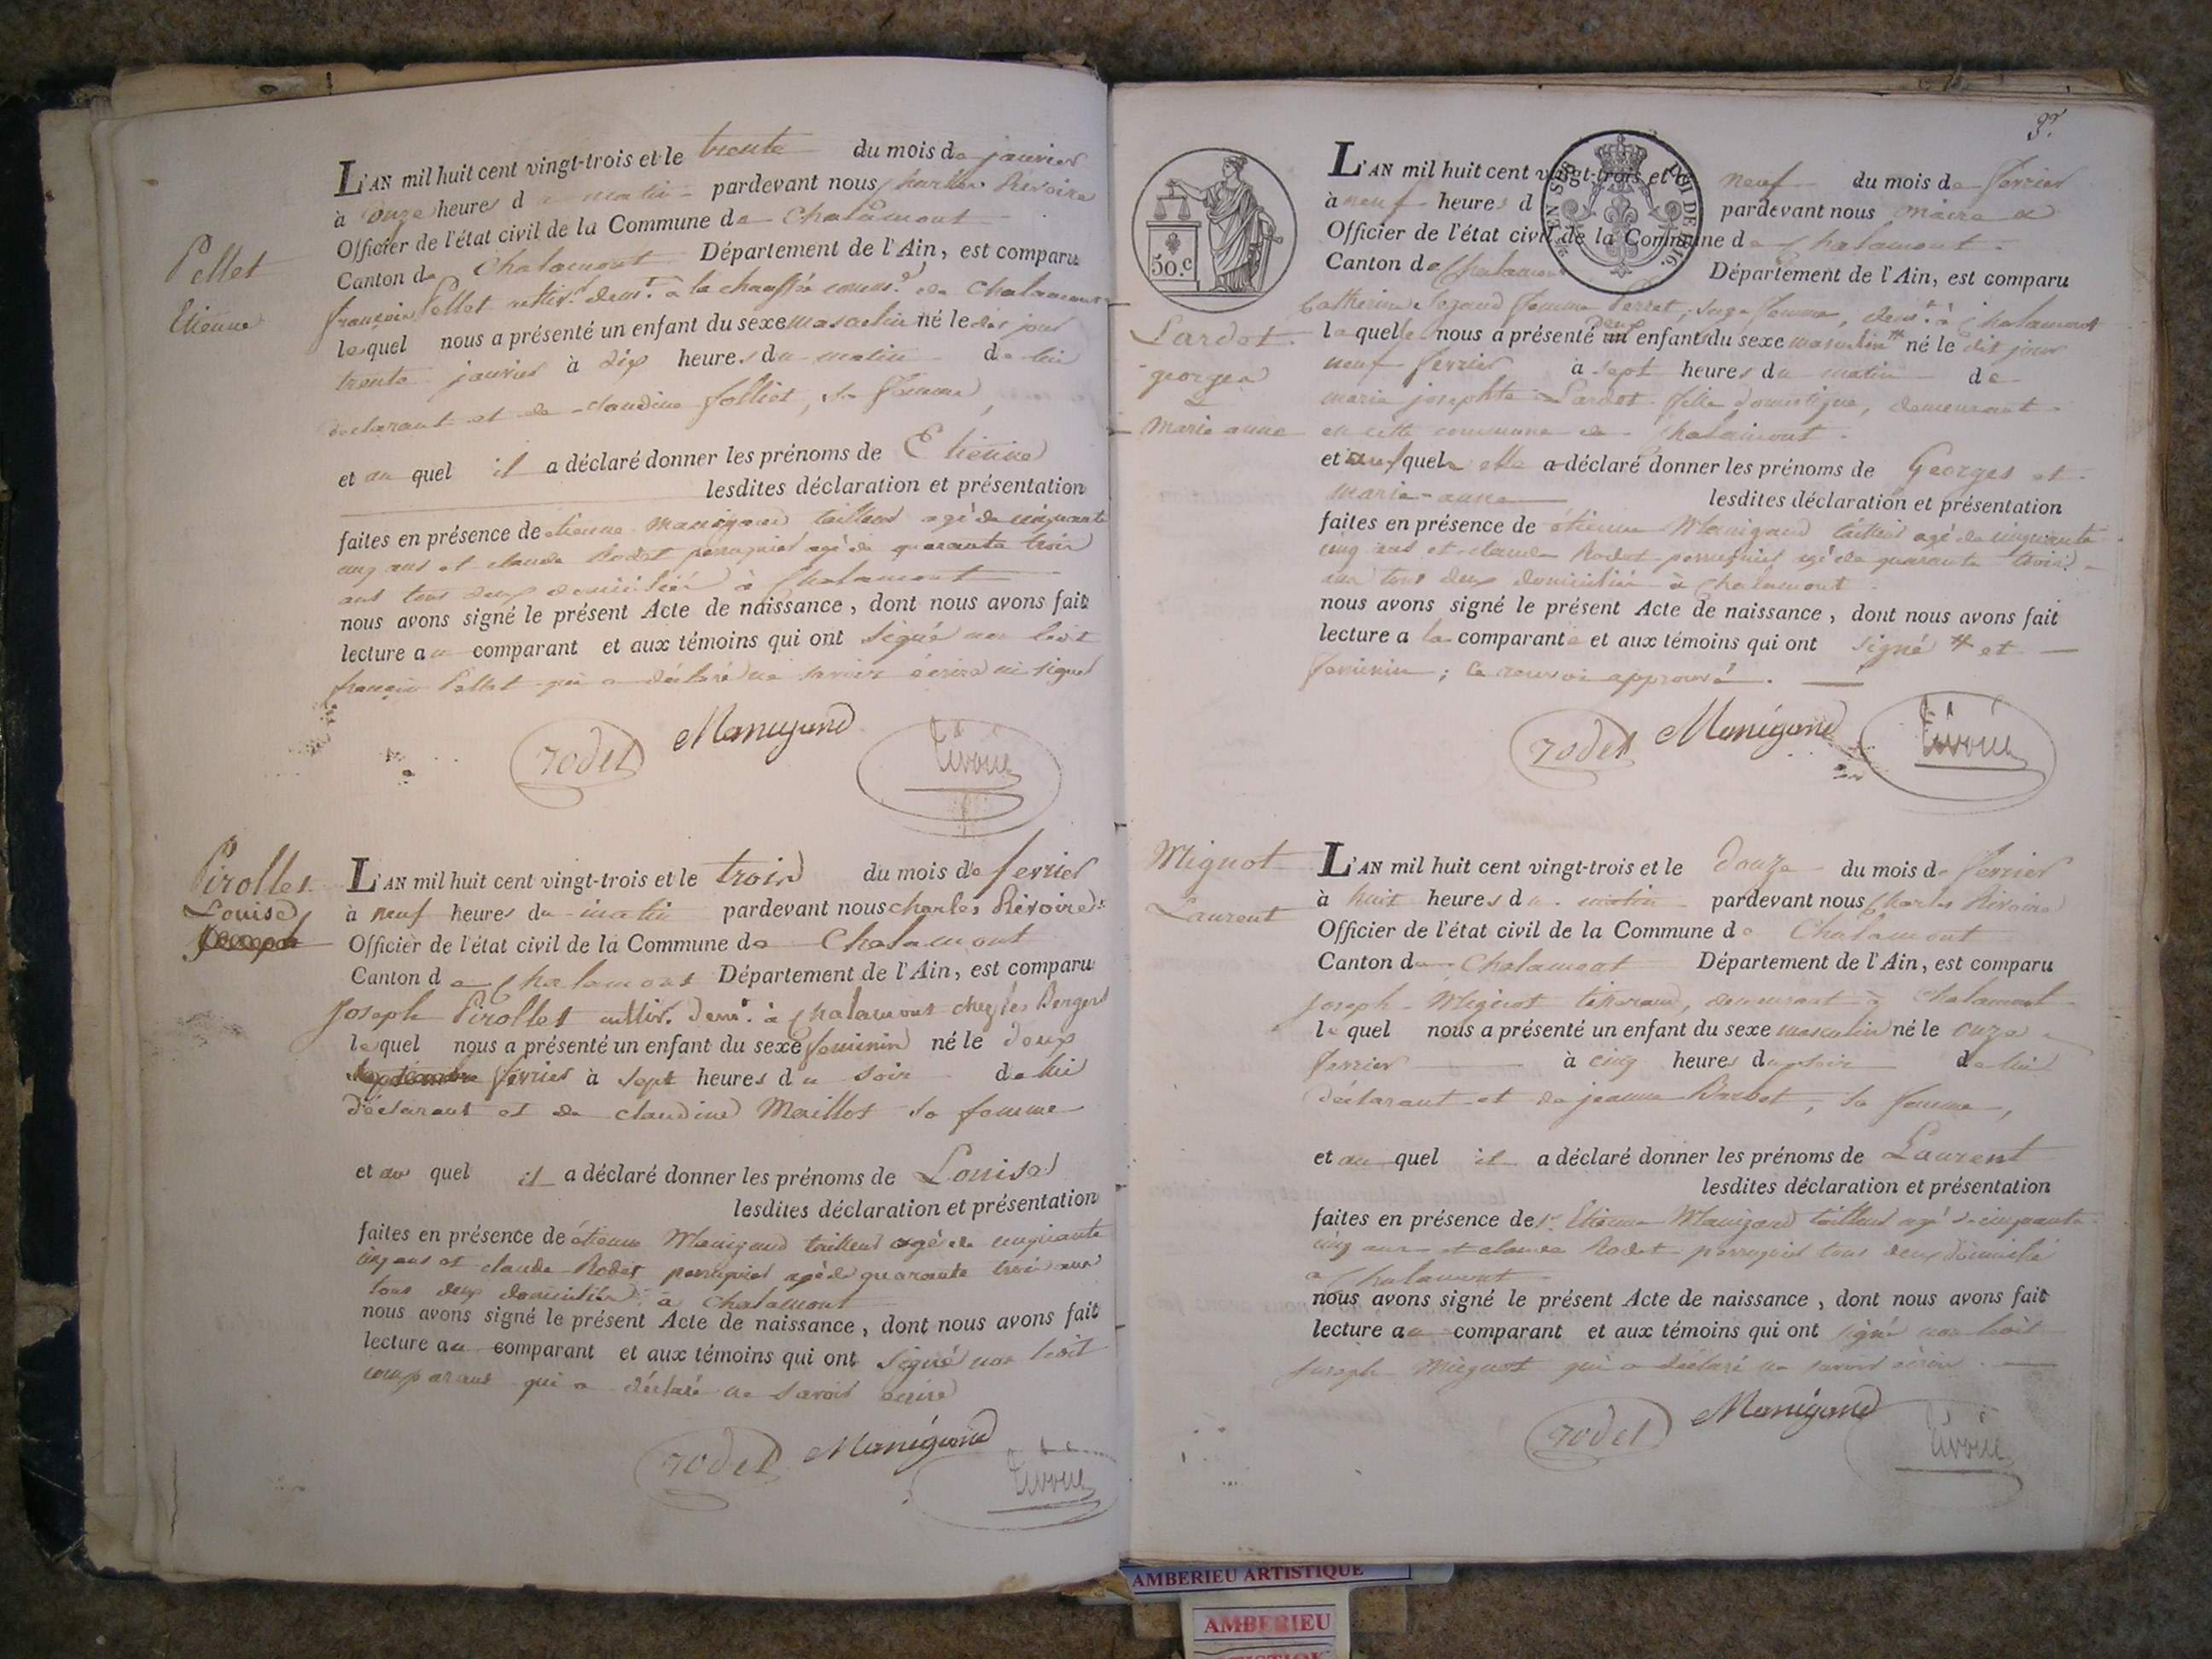 Pellet
Etienne
L'AN mil huit cent vingt-trois et le trente du mois de janvier
à onze heures du matin pardevant nous Charles Rivoire
Officier de l'état civil de la Commune de Chalamont
Canton de Chalamont Département de l'Ain, est comparu
françois Pellet cultiv.r dem.t à la chaussée comm.e de Chalamont
lequel nous a présenté un enfant du sexe masculin né le dit jour
trente janvier à dix heures du matin de lui
déclarant et de claudine folliet, sa femme,
et au quel il a déclaré donner les prénoms de Etienne
lesdites déclaration et présentation
faites en présence de etienne Manigand tailleur agé de cinquante
cinq ans et claude Rodet perruquier agé de quarante trois
ans tous deux domiciliés à Chalamont
nous avons signé le présent Acte de naissance, dont nous avons fait
lecture au comparant et aux témoins qui ont signé non ledit
françois Pellet qui a déclaré ne savoir écrire ni signer
rodet Manigand Rivoire
Pirollet
Louise
L'AN mil huit cent vingt-trois et le trois du mois de fevrier
à neuf heures du matin pardevant nous charles Rivoire
Officier de l'état civil de la Commune de Chalamont
Canton de Chalamont Département de l'Ain, est comparu
Joseph Pirollet cultiv. dem.t à Chalamont chez les Bergers
lequel nous a présenté un enfant du sexe feminin né le deux
septembre février à sept heures du soir de lui
déclarant et de claudine Maillot sa femme
et au quel il a déclaré donner les prénoms de Louise
lesdites déclaration et présentation
faites en présence de étienne Manigand tailleur agé de cinquante
cinq ans et claude Rodet perruquier agé de quarante trois ans
tous deux domiciliés à Chalamont
nous avons signé le présent Acte de naissance, dont nous avons fait
lecture au comparant et aux témoins qui ont signé non ledit
comparant qui a déclaré ne savoir écrire
rodet Manigand Rivoire
50.c
Lardet
georges
&
Marie anne
L'AN mil huit cent vingt-trois et le neuf du mois de fevrier
à neuf heures d pardevant nous maire &
Officier de l'état civil de la Commune de Chalamont
Canton de Chalamont Département de l'Ain, est comparu
Catherine femme Perret, sage femme, dem.t à Chalamont
laquelle nous a présenté un deux enfants du sexe masculin # né le dit jour
neuf fevrier à sept heures du matin de
marie josephte Lardet fille domestique, demeurant
en cette commune de Chalamont
et auxquels elle a déclaré donner les prénoms de Georges et
marie-anne lesdites déclaration et présentation
faites en présence de étienne Manigand tailleur agé de cinquante
cinq ans et claude Rodet perruquier agé de quarante trois
ans tous deux domiciliés à Chalamont
nous avons signé le présent Acte de naissance, dont nous avons fait
lecture a la comparante et aux témoins qui ont signé # et
feminin; le renvoi approuvé.
rodet Manigand Rivoire
Mignot
Laurent
L'AN mil huit cent vingt-trois et le douze du mois de fevrier
à huit heures du matin pardevant nous Charles Rivoire
Officier de l'état civil de la Commune de Chalamont
Canton de Chalamont Département de l'Ain, est comparu
Joseph Mignot tisserand, demeurant à Chalamont
lequel nous a présenté un enfant du sexe masculin né le onze
fevrier à cinq heures du soir de lui
déclarant et de jeanne Barbet, sa femme,
et au quel il a déclaré donner les prénoms de Laurent
lesdites déclaration et présentation
faites en présence de Etienne Manigand tailleur agé de cinquante
cinq ans et claude Rodet perruquier tous deux domicilié
à Chalamont
nous avons signé le présent Acte de naissance, dont nous avons fait
lecture au comparant et aux témoins qui ont signé non ledit
Joseph Mignot qui a déclaré ne savoir écrire.
rodet Manigand Rivoire
AMBERIEU ARTISTIQUE
AMBERIEU